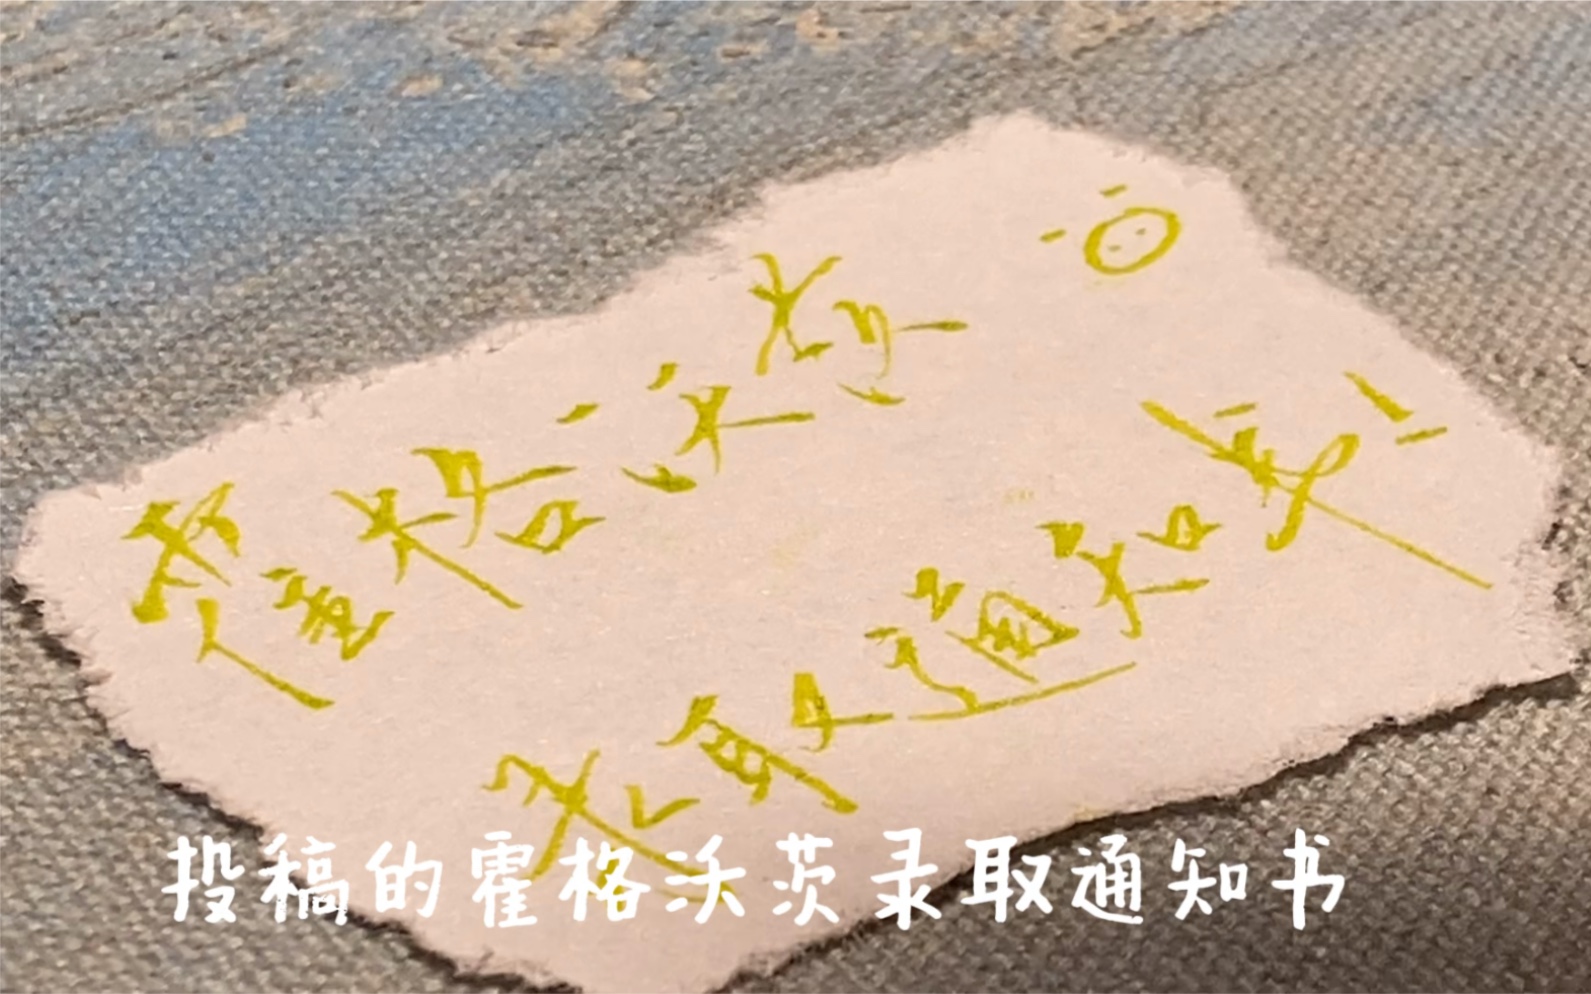 霍格沃茨
录取通知书!
投稿的霍格沃茨录取通知书